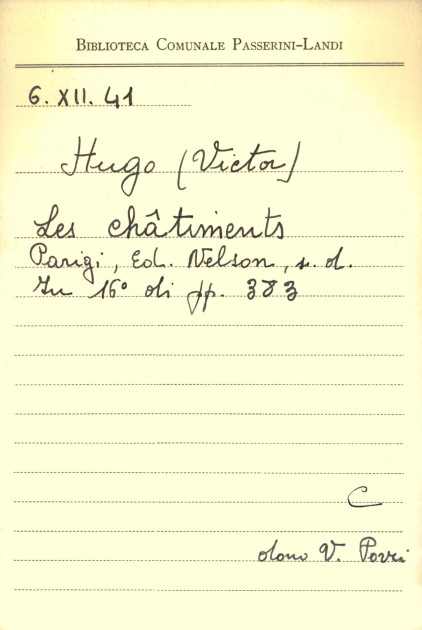 BIBLIOTECA COMUNALE PASSERINI-LANDI
6. XII. 41
Hugo (Victor)
Les châtiments
Parigi, Ed. Nelson, s. d.
In 16° di pp. 383
C
dono V.